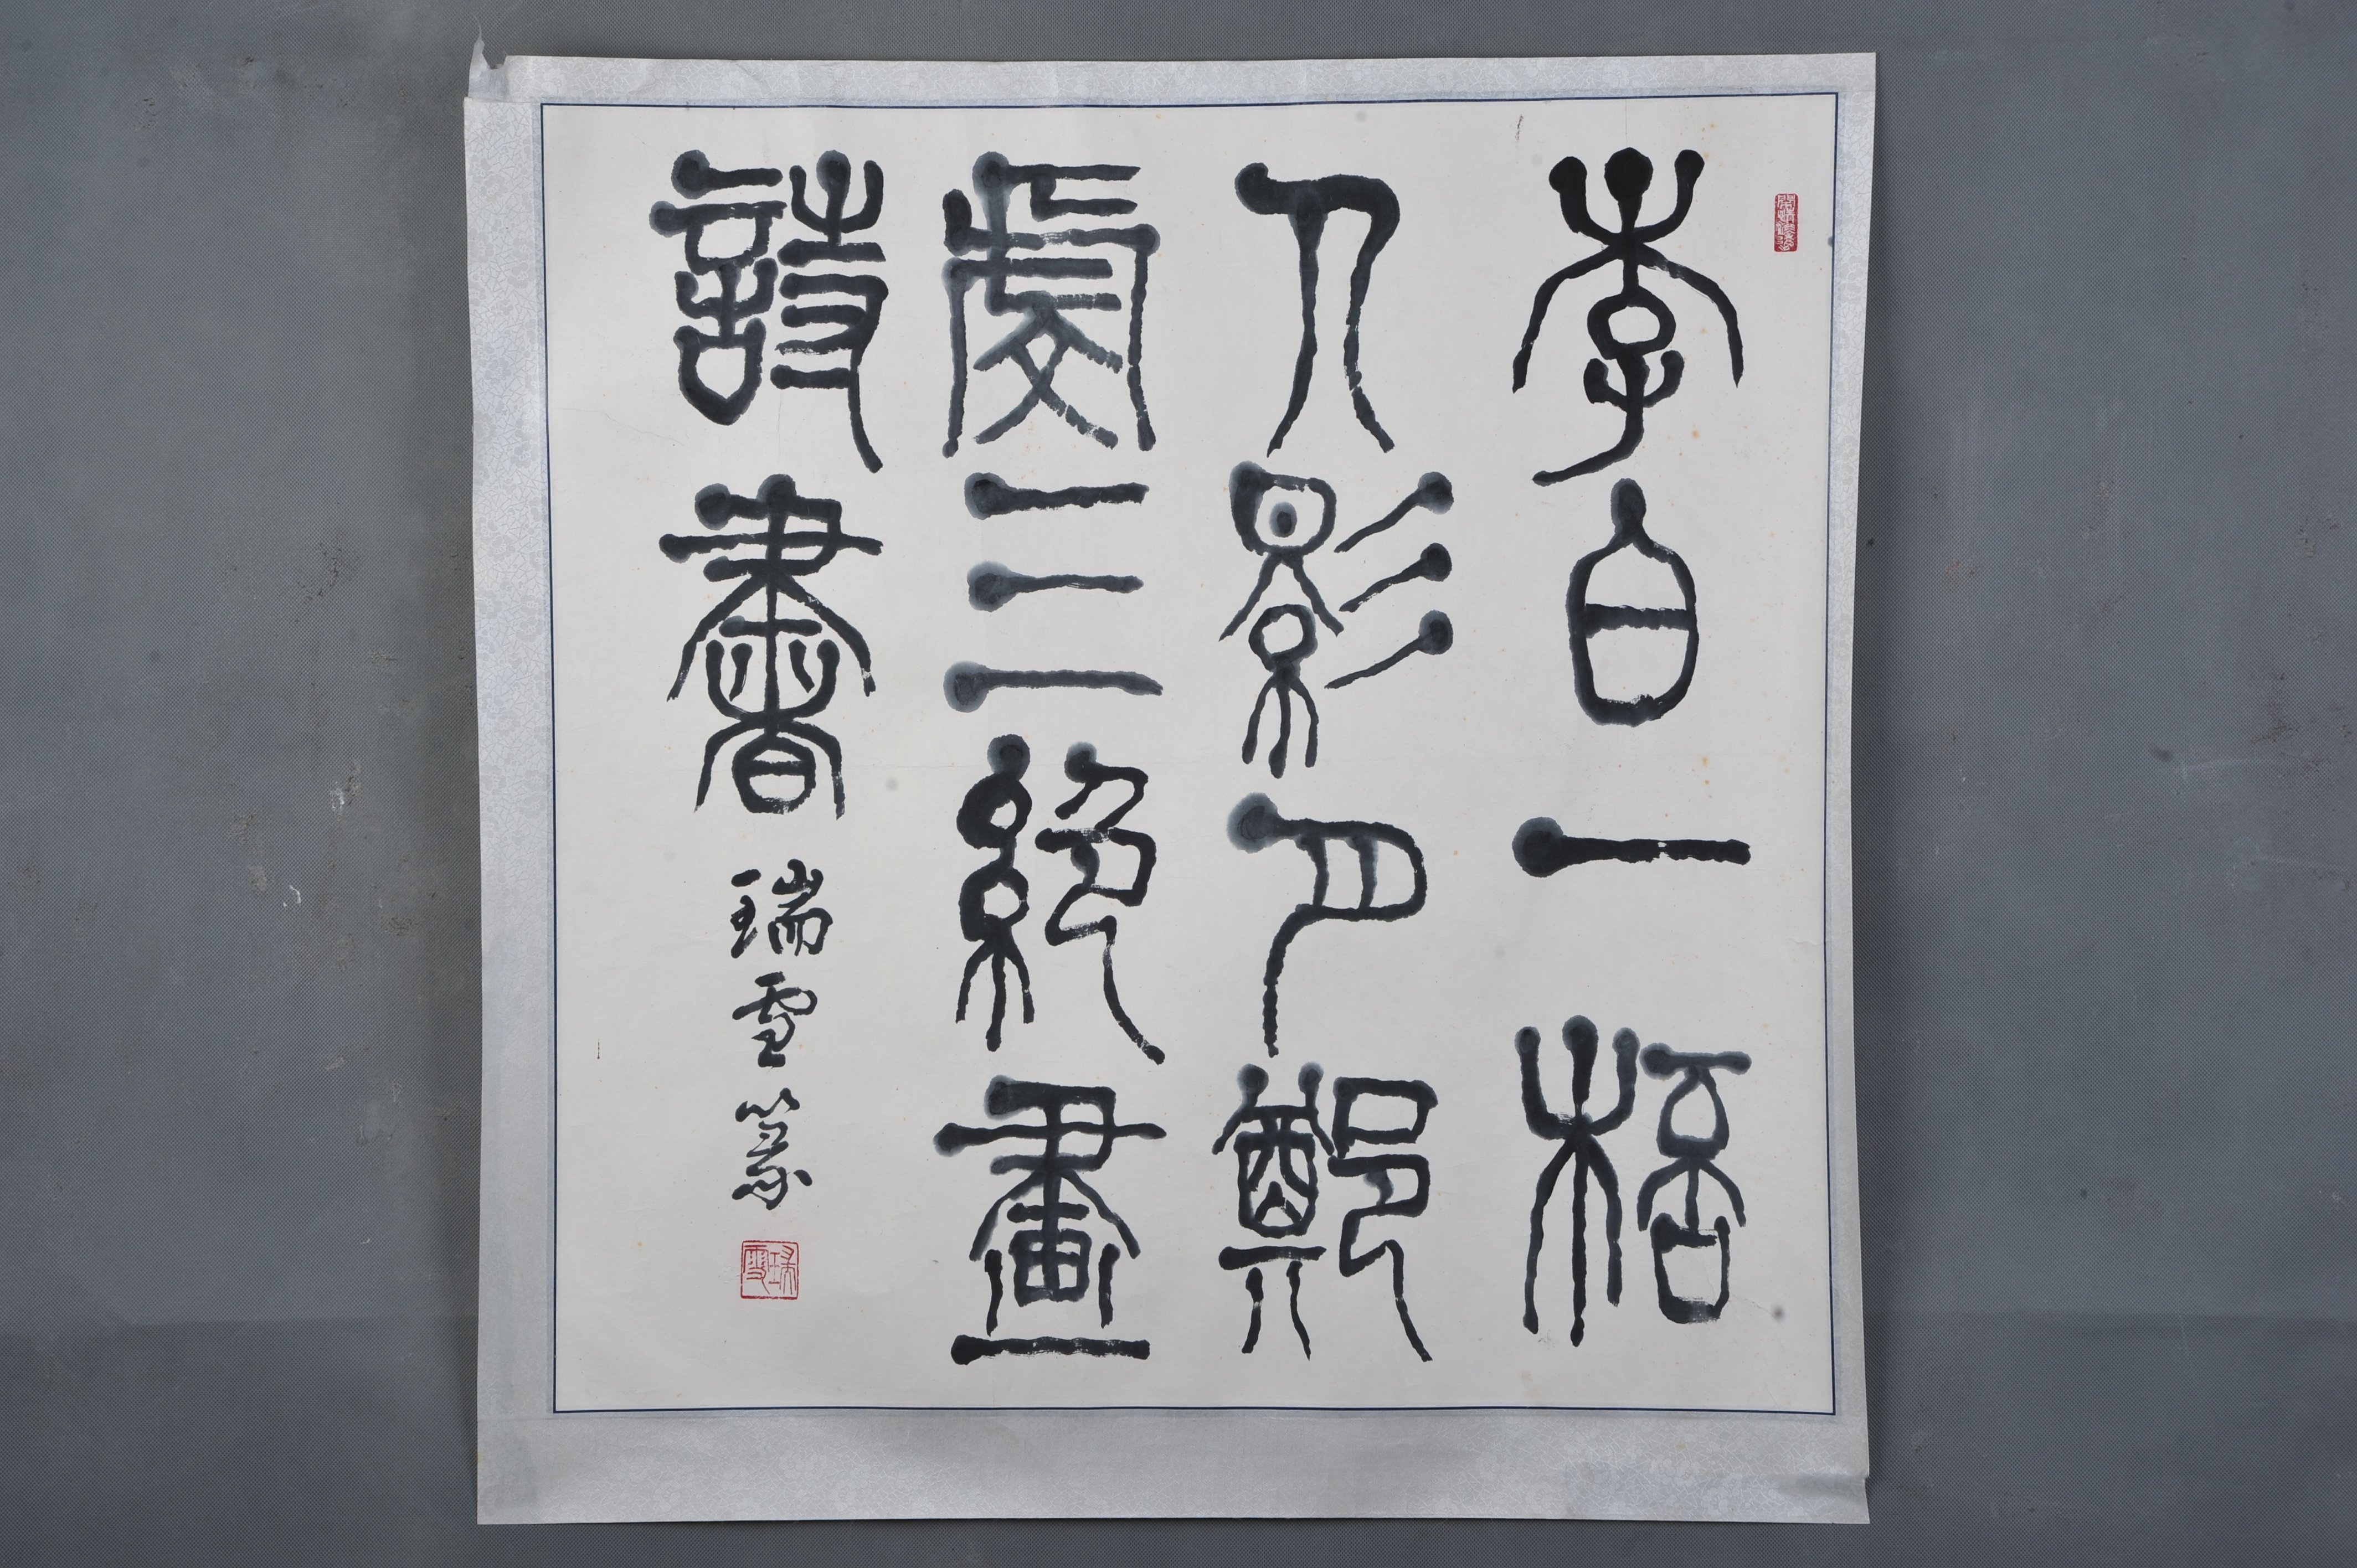 李白一桮
人影月鄭
虔三絕畫
詩書 瑞雪篆
瑞雪